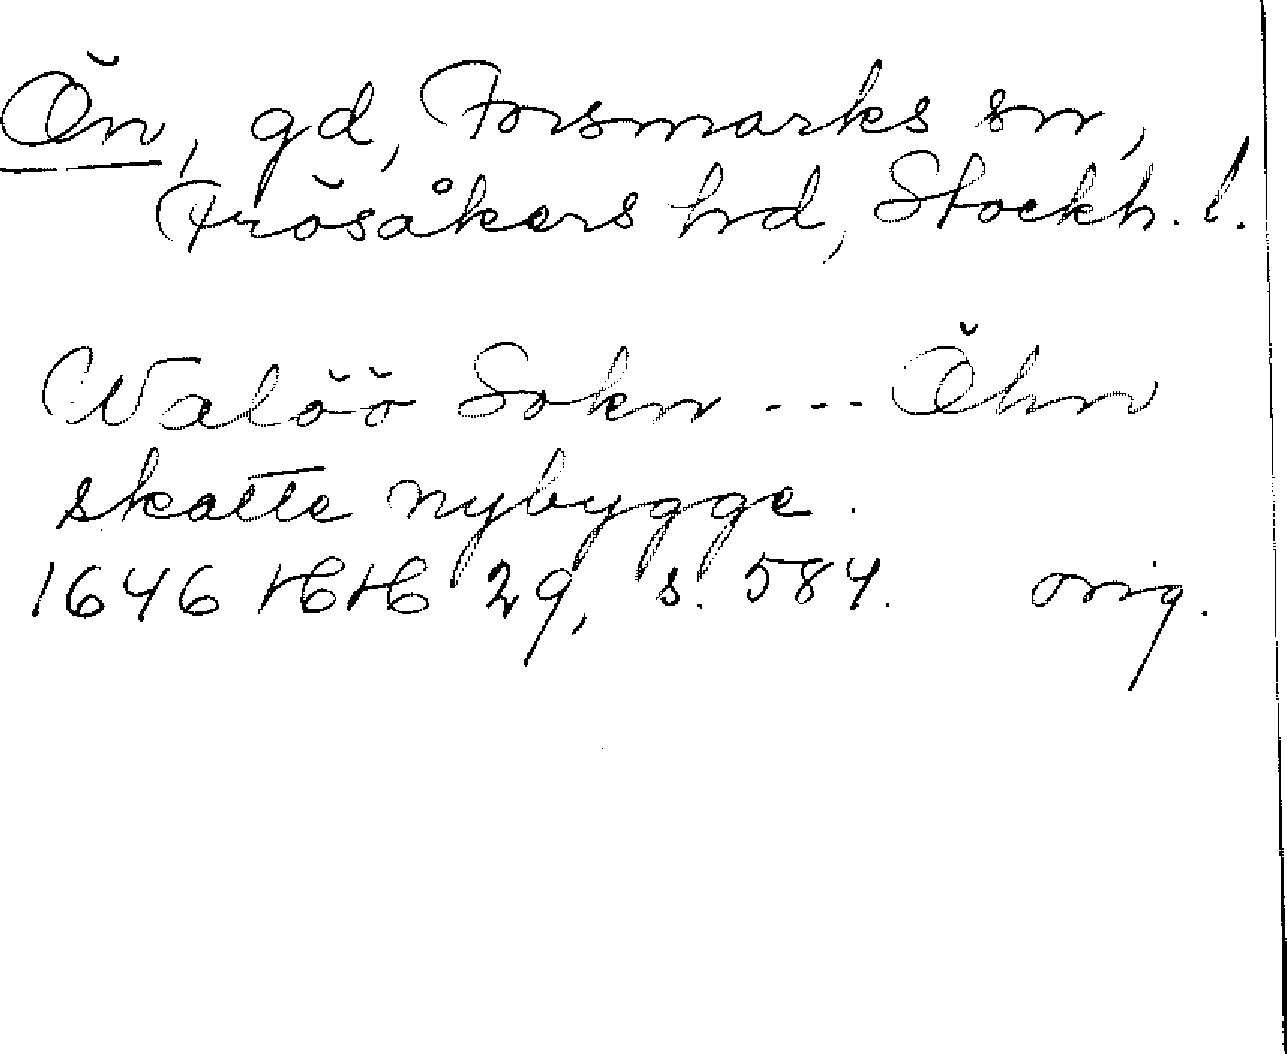 Ön, gd, Forsmarks sn,
Frösåkers hd, Stockh. l.
Walöö Sokn --- Öhn
skatte nybygge.
1646 HH 29, s. 584. orig.